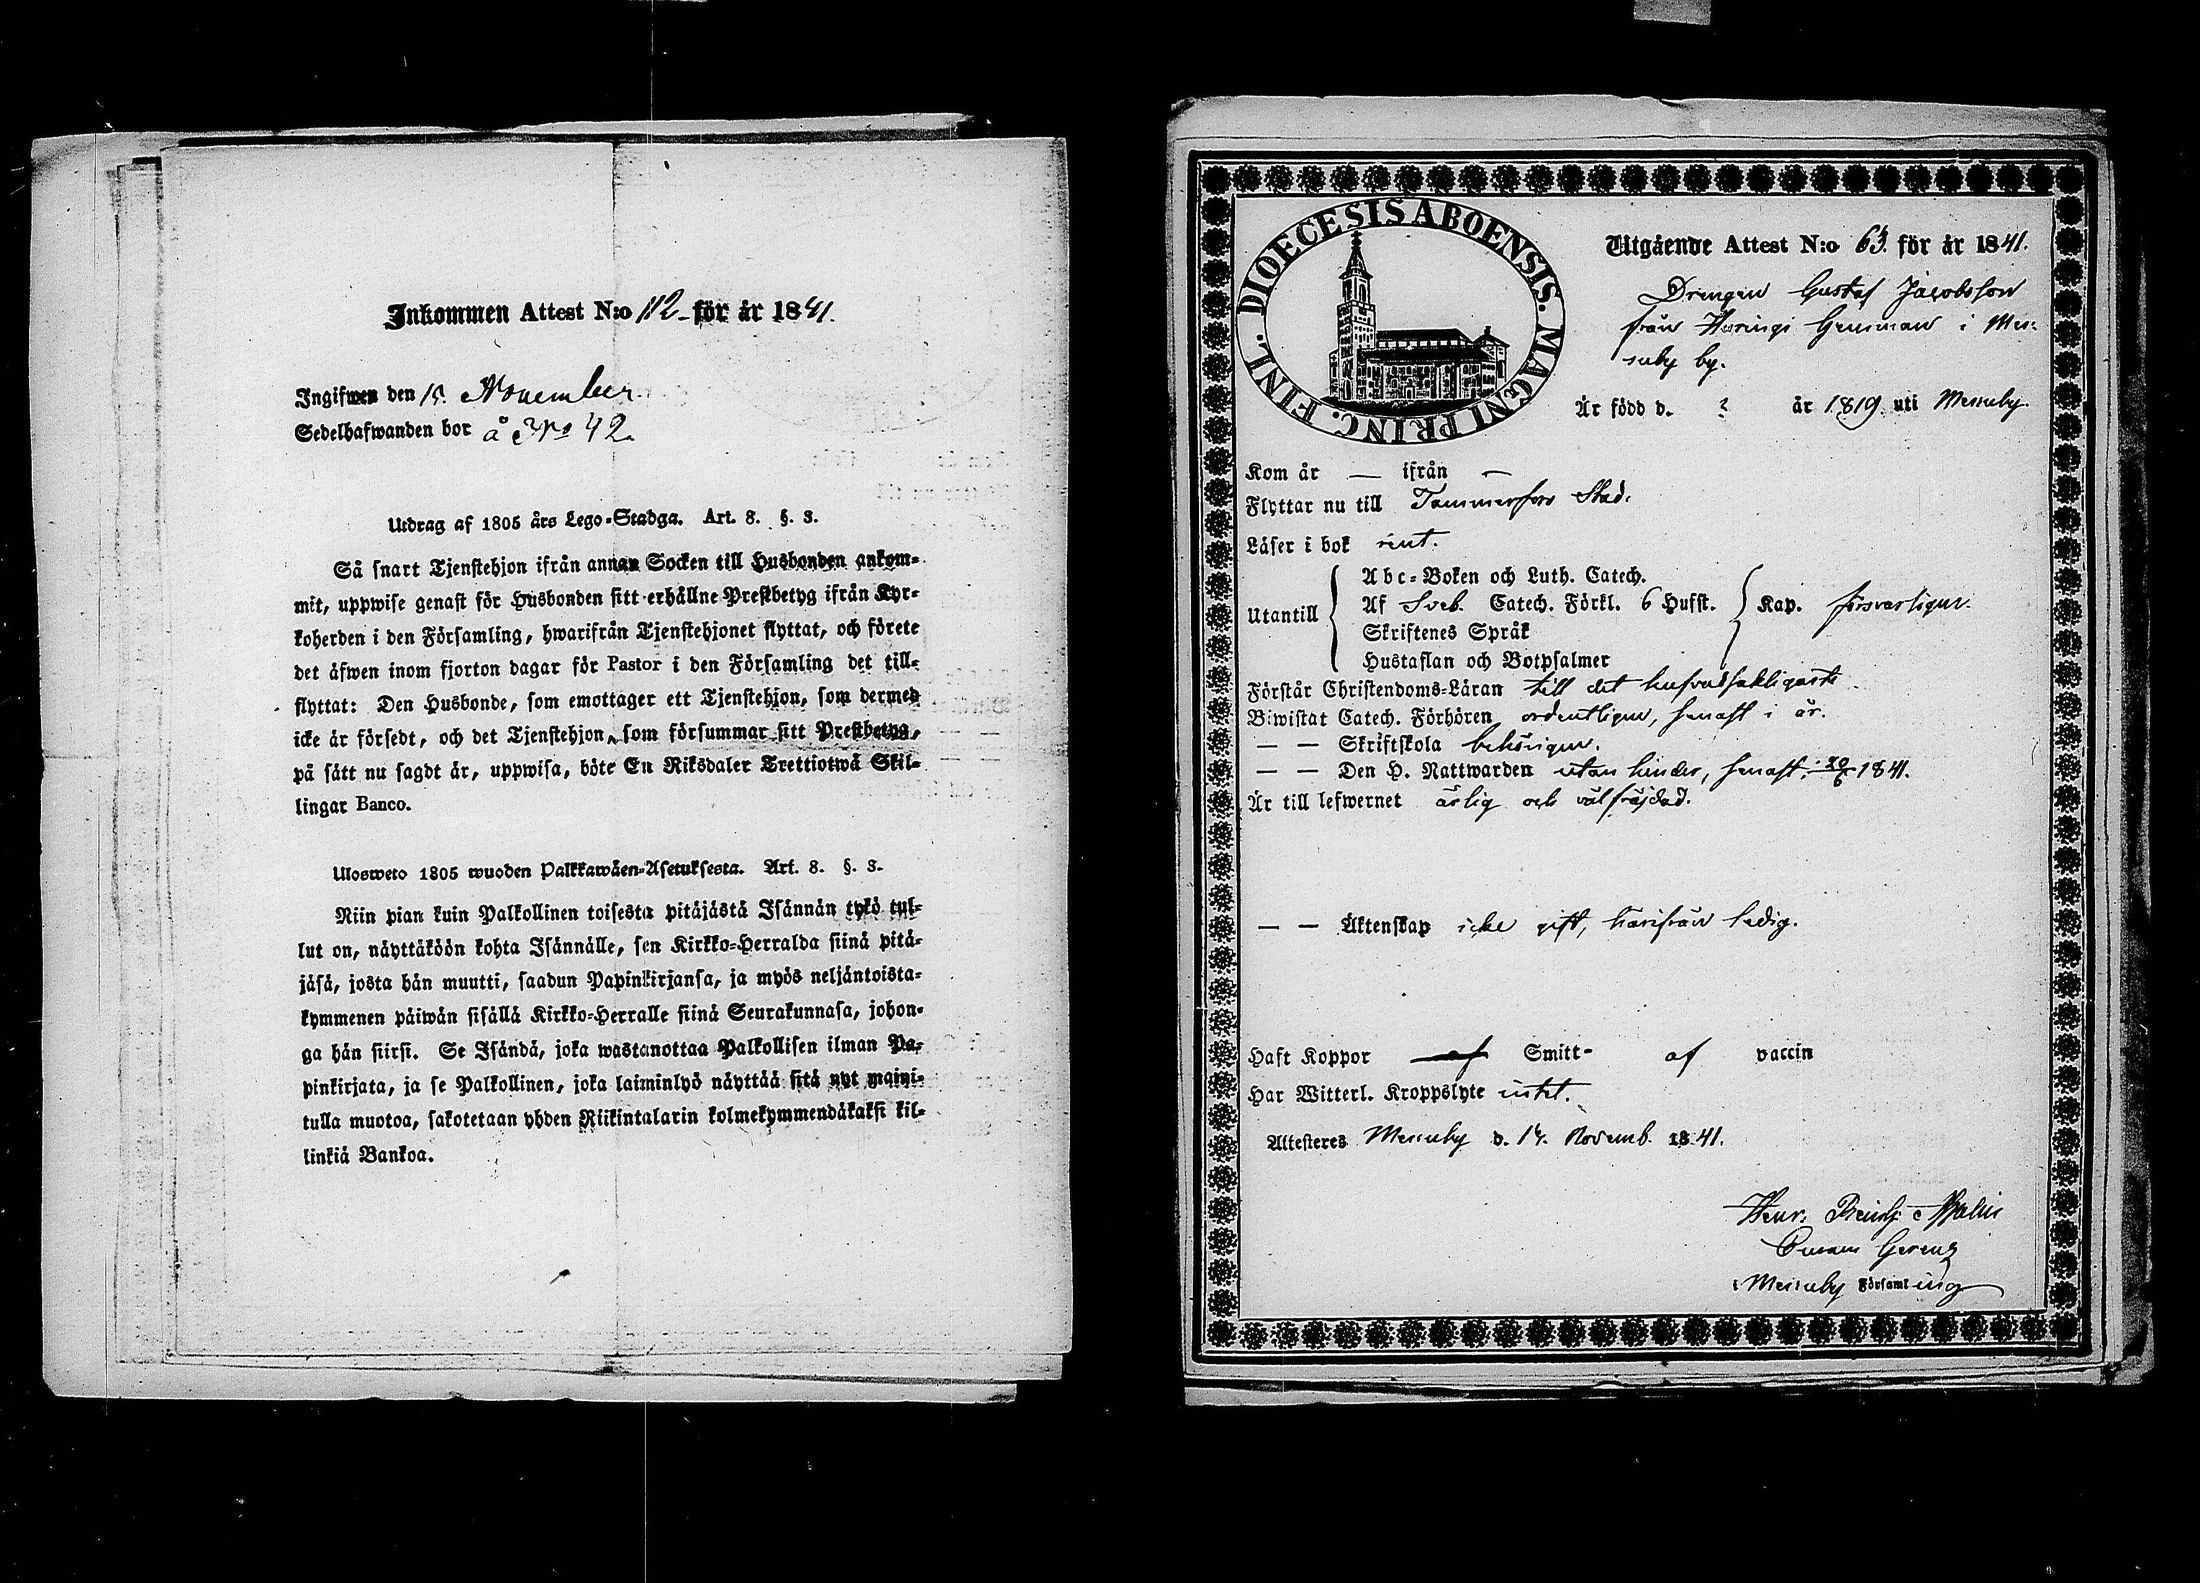 Inkommen Attest N:o 112 för år 1841.
Ingifwen den 15. November
Sedelhafwanden bor å No 42.
Utdrag af 1805 års Lego-Stadga. Art. 8. §. 3.
Så snart Tjenstehjon ifrån annan Socken till Husbonden ankom-
mit, uppwise genast för Husbonden sitt erhållne Prestbetyg ifrån Kyr-
koherden i den Församling, hwarifrån Tjenstehjonet flyttat, och förete
det äfwen inom fjorton dagar för Pastor i den Församling det till-
flyttat: Den Husbonde, som emottager ett Tjenstehjon, som dermed
icke är försedt, och det Tjenstehjon, som försummar sitt Prestbetyg,
på sätt nu sagdt är, uppwisa, böte En Riksdaler Trettiotwå Skil-
lingar Banco.
Ulosweto 1805 wuoden Palkkawäen-Asetuksesta. Art. 8. §. 3.
Niin pian kuin Palkollinen toisesta pitäjästä Isännän tykö tul-
lut on, näyttäköön kohta Isännälle, sen Kirkko-Herralda siinä pitä-
jäsä, josta hän muutti, saadun Papinkirjansa, ja myös neljäntoista-
kymmenen päiwän sisällä Kirkko-Herralle siinä Seurakunnasa, johon-
ga hän siirsi. Se Isändä, joka wastanottaa Palkollisen ilman Pa-
pinkirjata, ja se Palkollinen, joka laiminlyö näyttää sitä nyt maini-
tulla muotoa, sakotetaan yhden Riikintalarin kolmekymmendäkaksi kil-
linkiä Bankoa.
DIOECESIS ABOENSIS. MAGNI PRINC. FINL.
Utgående Attest N:o 63. för år 1841.
Drengen Gustaf Jacobsson
från Heringi Hemman i Mes-
suby by.
Är född d. ? år 1819 uti Messuby
Kom år — ifrån —
Flyttar nu till Tammerfors Stad.
Läser i bok rent.
Utantill
Abc-Boken och Luth. Catech.
Af Sveb. Catech. Förkl. 6 Hufst. Kap. försvarligen.
Skriftenes Språk
Hustaflan och Botpsalmer
Förstår Christendoms-Läran till det hufvudsakligaste
Biwistat Catech. Förhören ordentligen, senast i år.
— — Skriftskola behörigen.
— — Den H. Nattwarden utan hinder, senast 20/6 1841.
Är till lefwernet ärlig och välfrejdad.
— — Äktenskap icke gift, härifrån ledig.
Haft Koppor af Smitt- af vaccin
Har Witterl. Kroppslyte intet.
Attesteres Messuby d. 14. Novemb. 1841.
Henr. Reinh. Malin
i Messuby Församling